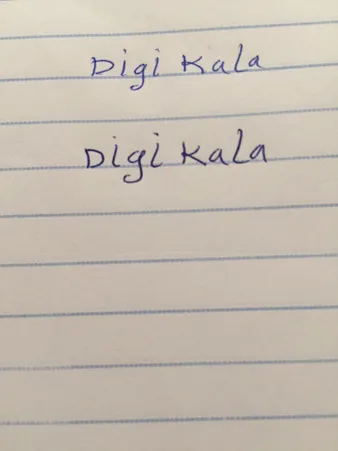 Digi Kala
Digi Kala